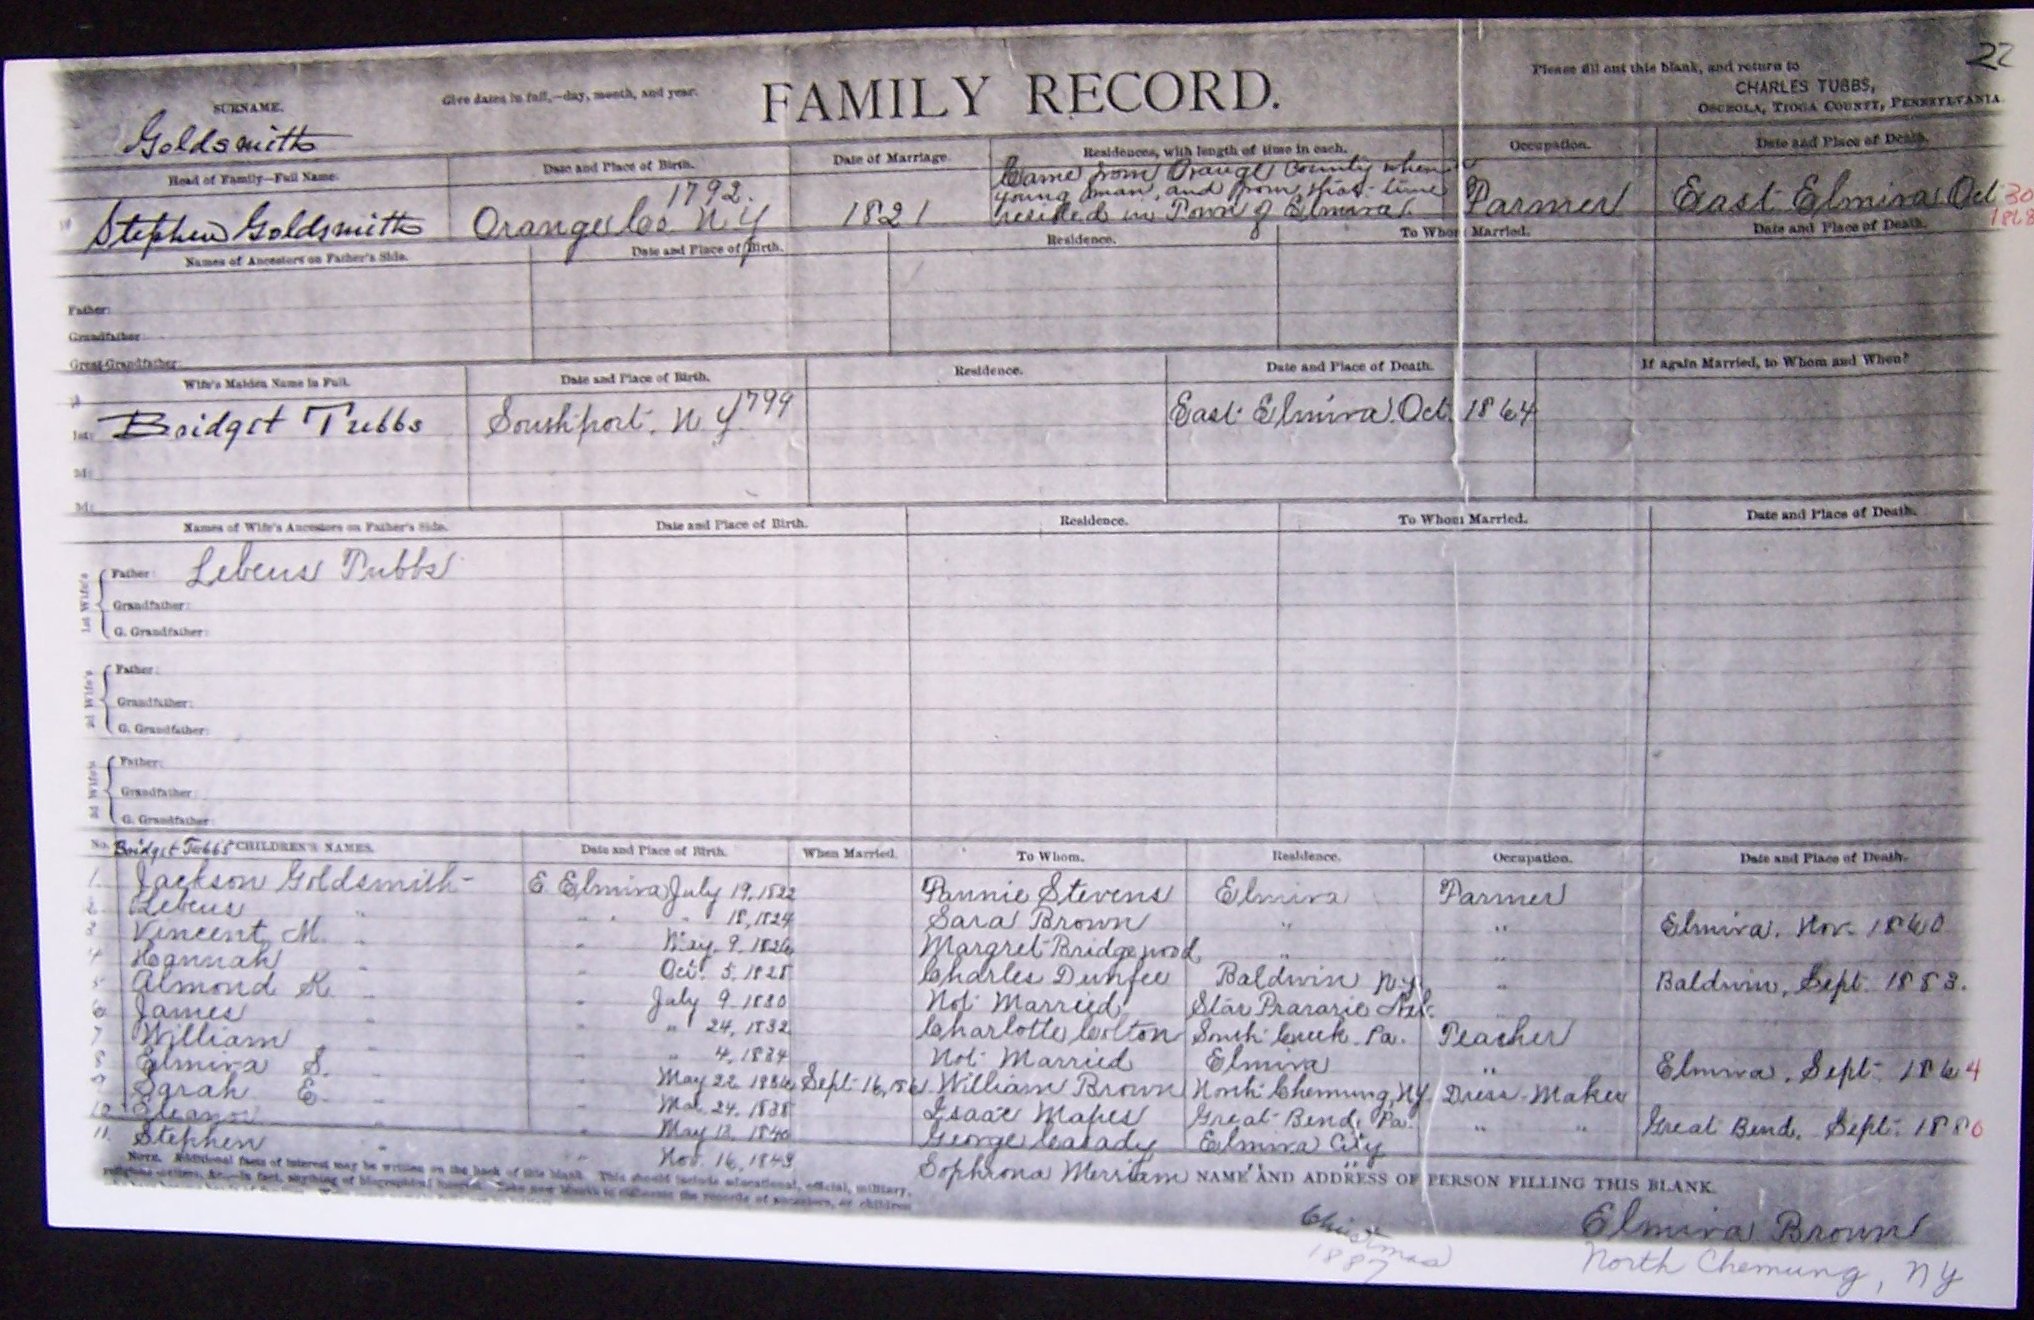 22
SURNAME. Give dates in full,—day, month, and year. FAMILY RECORD. Please fill out this blank, and return to
CHARLES TUBBS,
OSCEOLA, TIOGA COUNTY, PENNSYLVANIA.
Goldsmith
Head of Family—Full Name. Date and Place of Birth. Date of Marriage. Residences, with length of time in each. Occupation. Date and Place of Death.
Came from Orange County when
1792. young man, and from that time
Stephen Goldsmith Orange Co. N.Y 1821 resided in Town of Elmira Farmer East Elmira Oct 30
1868
Names of Ancestors on Father's Side. Date and Place of Birth. Residence. To Whom Married. Date and Place of Death.
Father:
Grandfather:
Great-Grandfather:
Wife's Maiden Name in Full. Date and Place of Birth. Residence. Date and Place of Death. If again Married, to Whom and When?
1st: Bridget Tubbs Southport. N.Y 1799 East Elmira. Oct. 1864
Names of Wife's Ancestors on Father's Side. Date and Place of Birth. Residence. To Whom Married. Date and Place of Death.
1st Wife's
Father: Lebeus Tubbs
Grandfather:
G. Grandfather:
2d Wife's
Father:
Grandfather:
G. Grandfather:
3d Wife's
Father:
Grandfather:
G. Grandfather:
No. Bridget Tubbs CHILDREN'S NAMES. Date and Place of Birth. When Married. To Whom. Residence. Occupation. Date and Place of Death.
1. Jackson Goldsmith E Elmira July 19, 1822 Fannie Stevens Elmira Farmer
2 Lebeus " " " " 18, 1824 Sara Brown " " Elmira. Nov. 1860
3 Vincent M. " " May. 9. 1826 Margret Bridgewood " "
4 Hannah " " Oct. 5. 1828 Charles Dunfee Baldwin N.y " Baldwin, Sept. 1883.
5 Almond K " " July 9 1830 Not Married Star Prararie Neb.
6 James " " " 24, 1832 Charlotte Colton South Creek Pa. Teacher
7 William " " " 4, 1834 Not Married Elmira " Elmira, Sept. 1864
8 Elmira S. " " May 22 1836 Sept 16, William Brown North Chemung, NY. Dress-Maker
9 Sarah E. " " Mar. 24. 1838 Isaac Mapes Great Bend, Pa. " " Great Bend. Sept. 1880
10 Eleanor " " May 12, 1840 George Casady Elmira City
11. Stephen " " Nov. 16, 1843 Sophrona Merriam " "
NOTE. Additional facts of interest may be written on the back of this blank. This should include educational, official, military,
NAME AND ADDRESS OF PERSON FILLING THIS BLANK.
Christmas
1887
Elmira Brown
North Chemung, NY